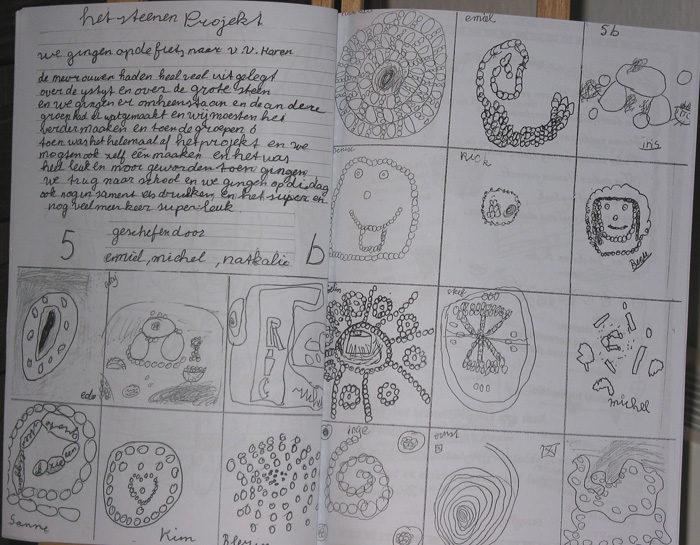 het steenen Projekt
we gingen op de fiets naar v.v. Haren
de mevrouwen haden heel veel uit gelegt
over de ystyt en over de grote steen
en we gingen er omheen staan en de andere
groep had al uptgemaakt en wij moesten het
verder maaken en toen de groepen 6
toen was het helemaal af het projekt en we
mogsen ook zelf één maaken en het was
heel leuk en moor geworden toen gingen
we trug naar school en we gingen op disdag
ook nog in sament els drukken en het super en
nog veel meer keer super leuk
5 geschrefen door b
emiel, michel, nathalie
emiel
5b
iris
Denise
Rick
Renée
stef
michel
edo
ERIC
Sanne
Kim
inge
ernst